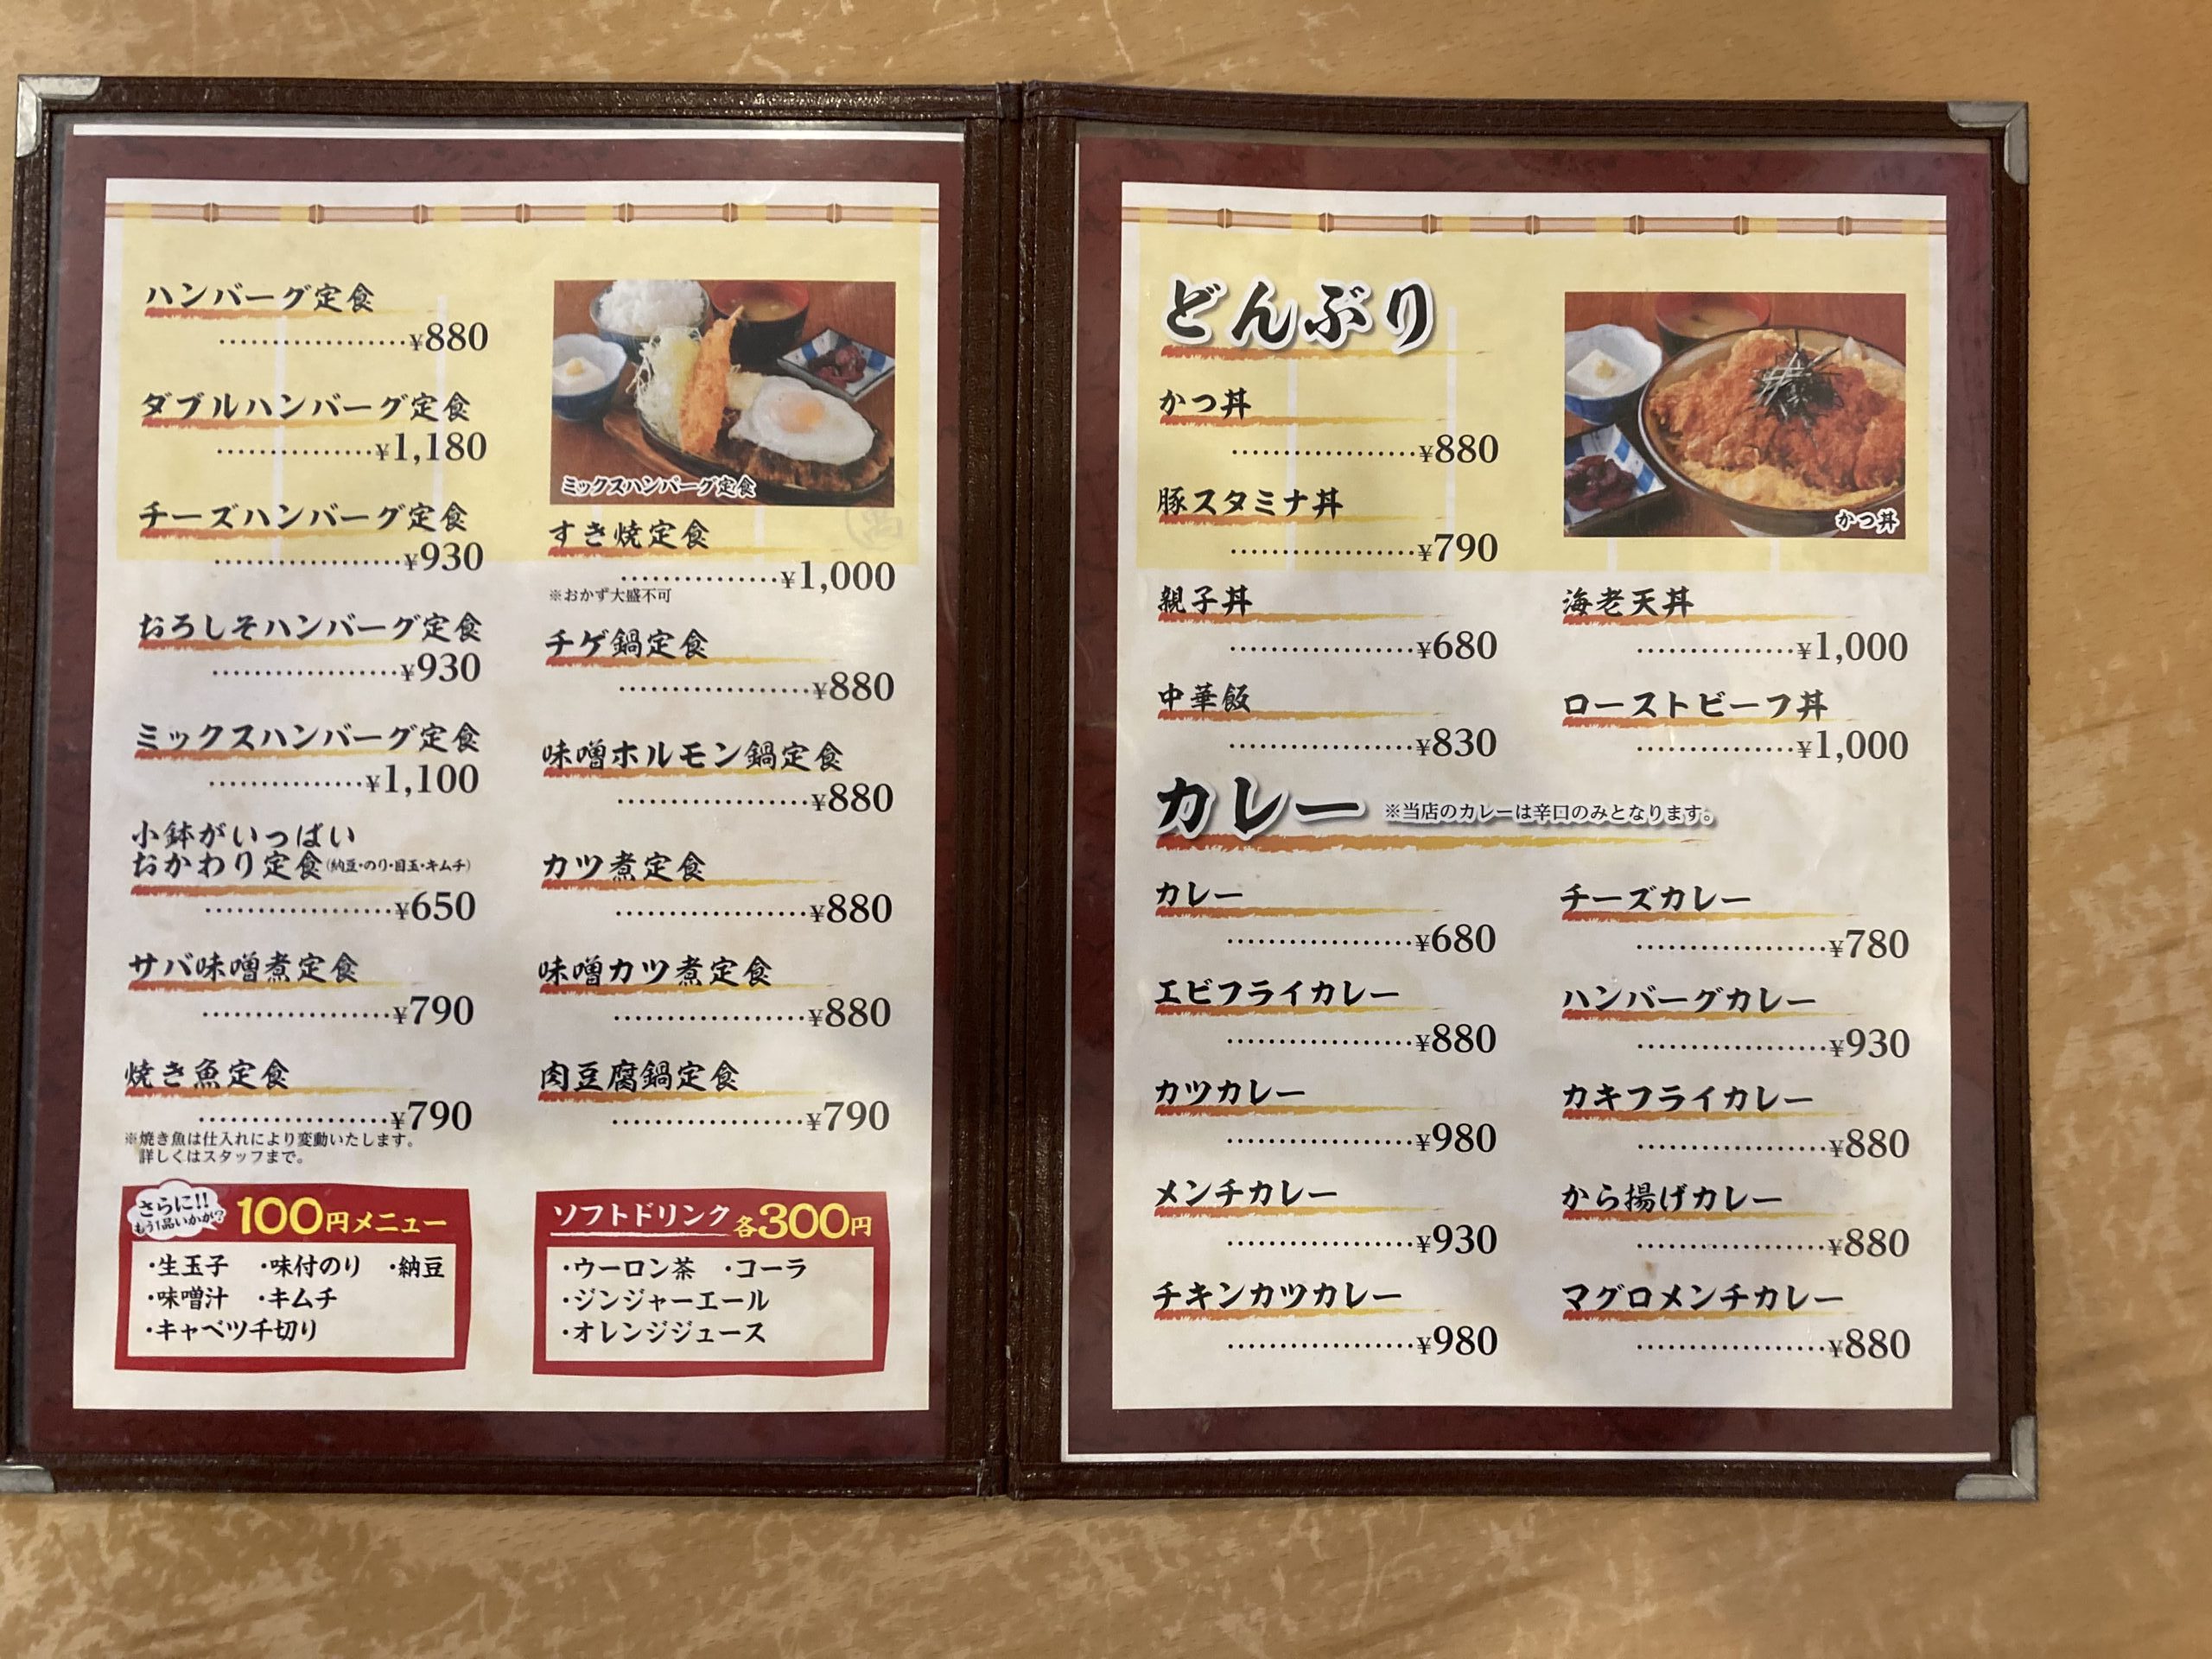 ハンバーグ定食
¥880
ダブルハンバーグ定食
¥1,180
チーズハンバーグ定食
¥930
おろしそハンバーグ定食
¥930
ミックスハンバーグ定食
¥1,100
小鉢がいっぱい
おかわり定食(納豆・のり・目玉・キムチ)
¥650
サバ味噌煮定食
¥790
焼き魚定食
¥790
※焼き魚は仕入れにより変動いたします。
詳しくはスタッフまで。
ミックスハンバーグ定食
すき焼定食
¥1,000
※おかず大盛不可
チゲ鍋定食
¥880
味噌ホルモン鍋定食
¥880
カツ煮定食
¥880
味噌カツ煮定食
¥880
肉豆腐鍋定食
¥790
さらに!!
もう1品いかが?
100円メニュー
・生玉子 ・味付のり ・納豆
・味噌汁 ・キムチ
・キャベツ千切り
ソフトドリンク 各300円
・ウーロン茶 ・コーラ
・ジンジャーエール
・オレンジジュース
どんぶり
かつ丼
¥880
豚スタミナ丼
¥790
親子丼
¥680
中華飯
¥830
かつ丼
海老天丼
¥1,000
ローストビーフ丼
¥1,000
カレー ※当店のカレーは辛口のみとなります。
カレー
¥680
エビフライカレー
¥880
カツカレー
¥980
メンチカレー
¥930
チキンカツカレー
¥980
チーズカレー
¥780
ハンバーグカレー
¥930
カキフライカレー
¥880
から揚げカレー
¥880
マグロメンチカレー
¥880